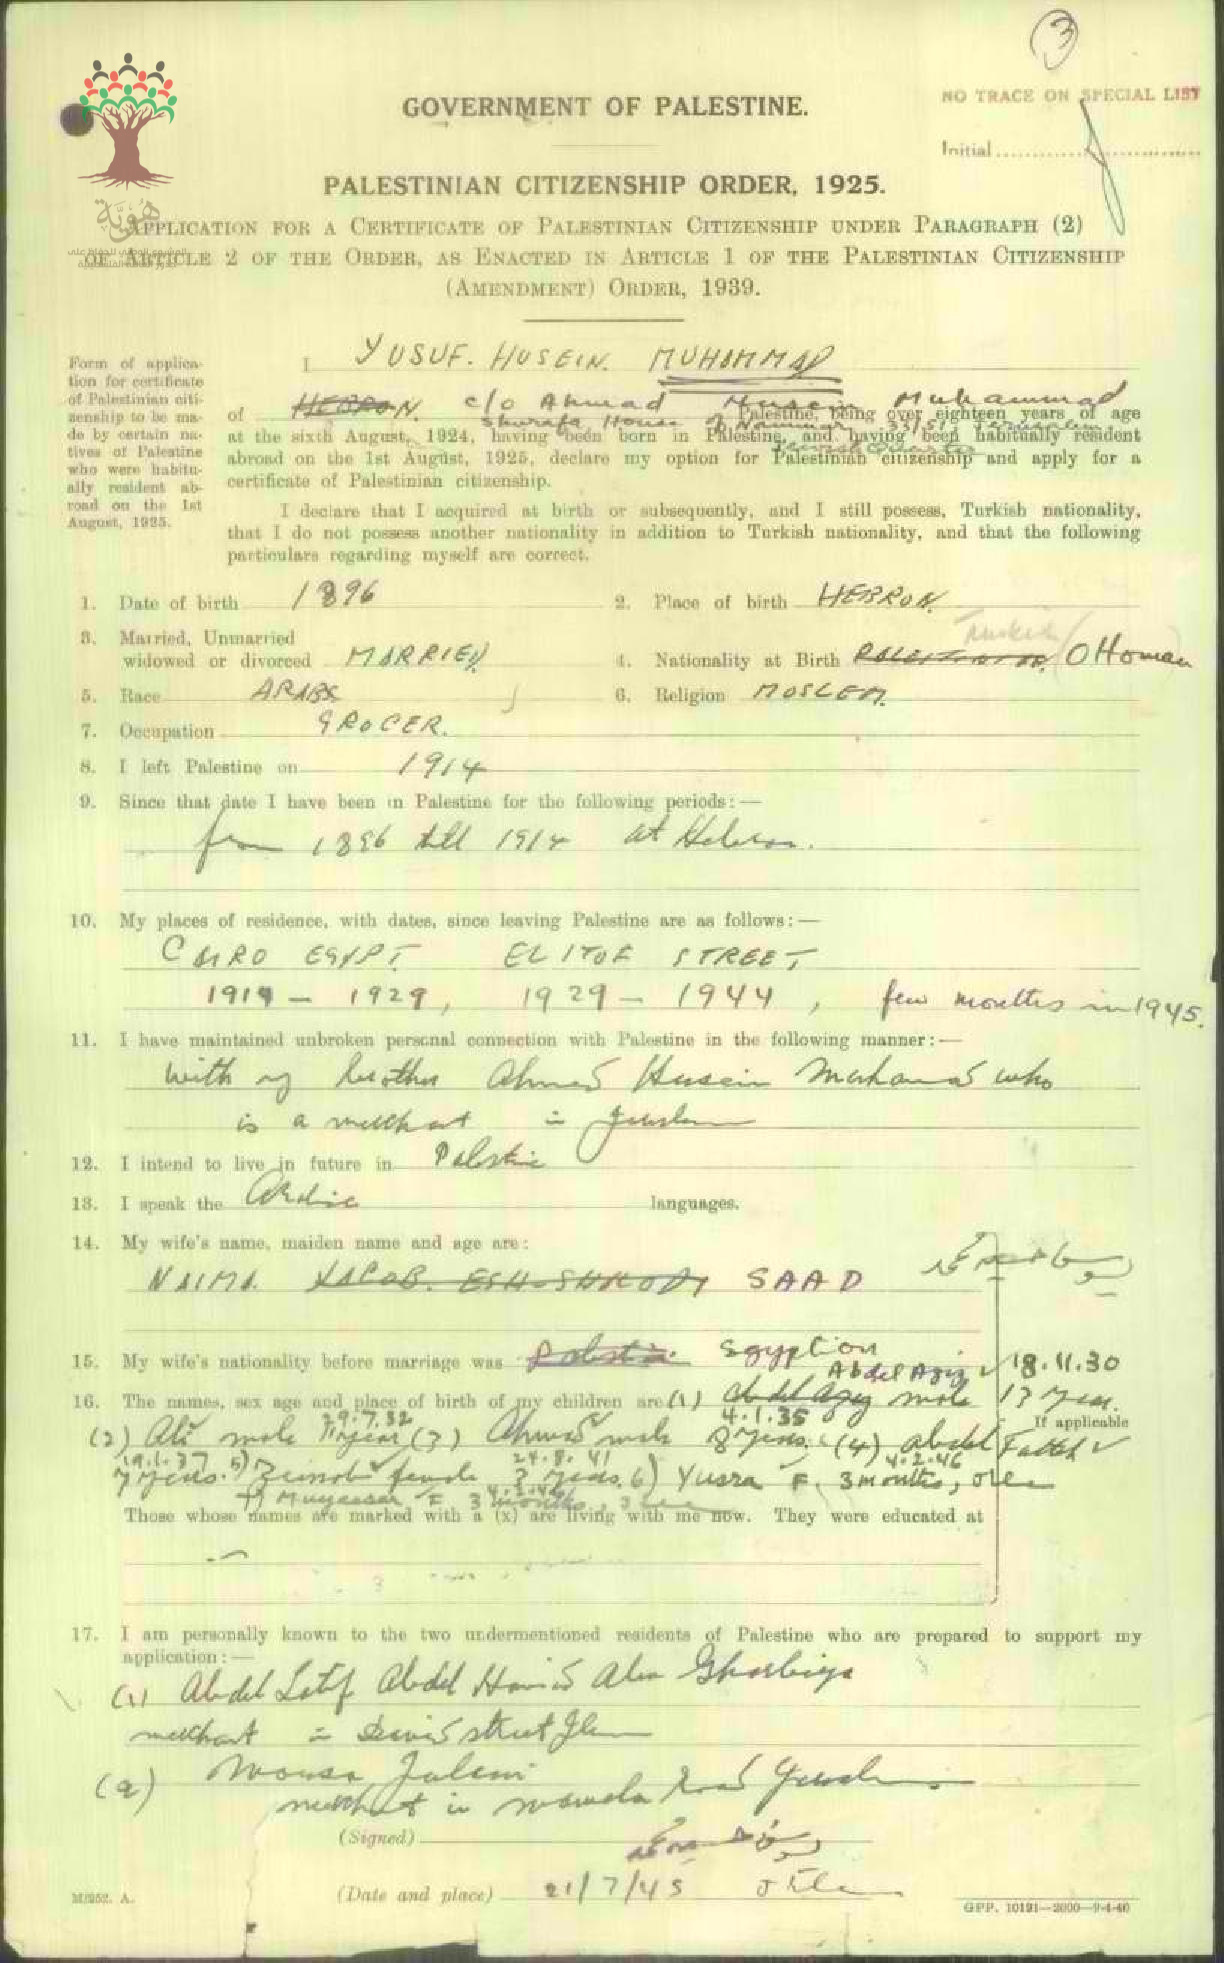 3
NO TRACE ON SPECIAL LIST
Initial
GOVERNMENT OF PALESTINE.
PALESTINIAN CITIZENSHIP ORDER, 1925.
هوية
APPLICATION FOR A CERTIFICATE OF PALESTINIAN CITIZENSHIP UNDER PARAGRAPH (2)
OF ARTICLE 2 OF THE ORDER, AS ENACTED IN ARTICLE 1 OF THE PALESTINIAN CITIZENSHIP
(AMENDMENT) ORDER, 1939.
Form of applica-
tion for certificate
of Palestinian citi-
zenship to be ma-
de by certain na-
tives of Palestine
who were habitu-
ally resident ab-
road on the 1st
August, 1925.
I YUSUF. HUSEIN. MUHAMMAD
of HEBRON. c/o Ahmad Husein Muhammad
Palestine, being over eighteen years of age
Sharafa House of Nammar 33/51 Jerusalem
at the sixth August, 1924, having been born in Palestine, and having been habitually resident
Jewish Quarter
abroad on the 1st August, 1925, declare my option for Palestinian citizenship and apply for a
certificate of Palestinian citizenship.
I declare that I acquired at birth or subsequently, and I still possess, Turkish nationality,
that I do not possess another nationality in addition to Turkish nationality, and that the following
particulars regarding myself are correct.
1. Date of birth 1896 2. Place of birth HEBRON.
3. Married, Unmarried
widowed or divorced MARRIED 4. Nationality at Birth Turkish Ottoman
5. Race ARABS 6. Religion MOSLEM.
7. Occupation GROCER.
8. I left Palestine on 1914
9. Since that date I have been in Palestine for the following periods:—
from 1896 till 1914 at Hebron.
10. My places of residence, with dates, since leaving Palestine are as follows:—
CAIRO EGYPT. STREET
1914 — 1929, 1929 — 1944, few months in 1945.
11. I have maintained unbroken personal connection with Palestine in the following manner:—
with my brother Ahmad Husein Mohamad who
is a merchant in Jerusalem
12. I intend to live in future in Palestine
13. I speak the Arabic languages.
14. My wife's name, maiden name and age are:
NAIMA. YACOB. SAAD
15. My wife's nationality before marriage was Palestinian Egyption
Abdel Aziz 18.11.30
16. The names, sex age and place of birth of my children are (1) Abdel Aziz male 13 years.
29.7.32 4.1.35 If applicable
(2) Ali male 11 years (3) Ahmad male 8 years. (4) Abdel Fattah
19.1.37 24.8.41 4.2.46
7 years. 5) Zeinab female 3 years. 6) Yusra F. 3 months,
7) Muyassar F 3 months,
Those whose names are marked with a (x) are living with me now. They were educated at
17. I am personally known to the two undermentioned residents of Palestine who are prepared to support my
application:—
(1) Abdel Latif Abdel Hamid Abu Gharbiya
merchant in David street Jlem
(2) Mousa Julani
merchant in Mamela Road Jerusalem.
(Signed)
(Date and place) 21/7/45 Jlem
M/252. A.
GPP. 10191—2000—9-4-40